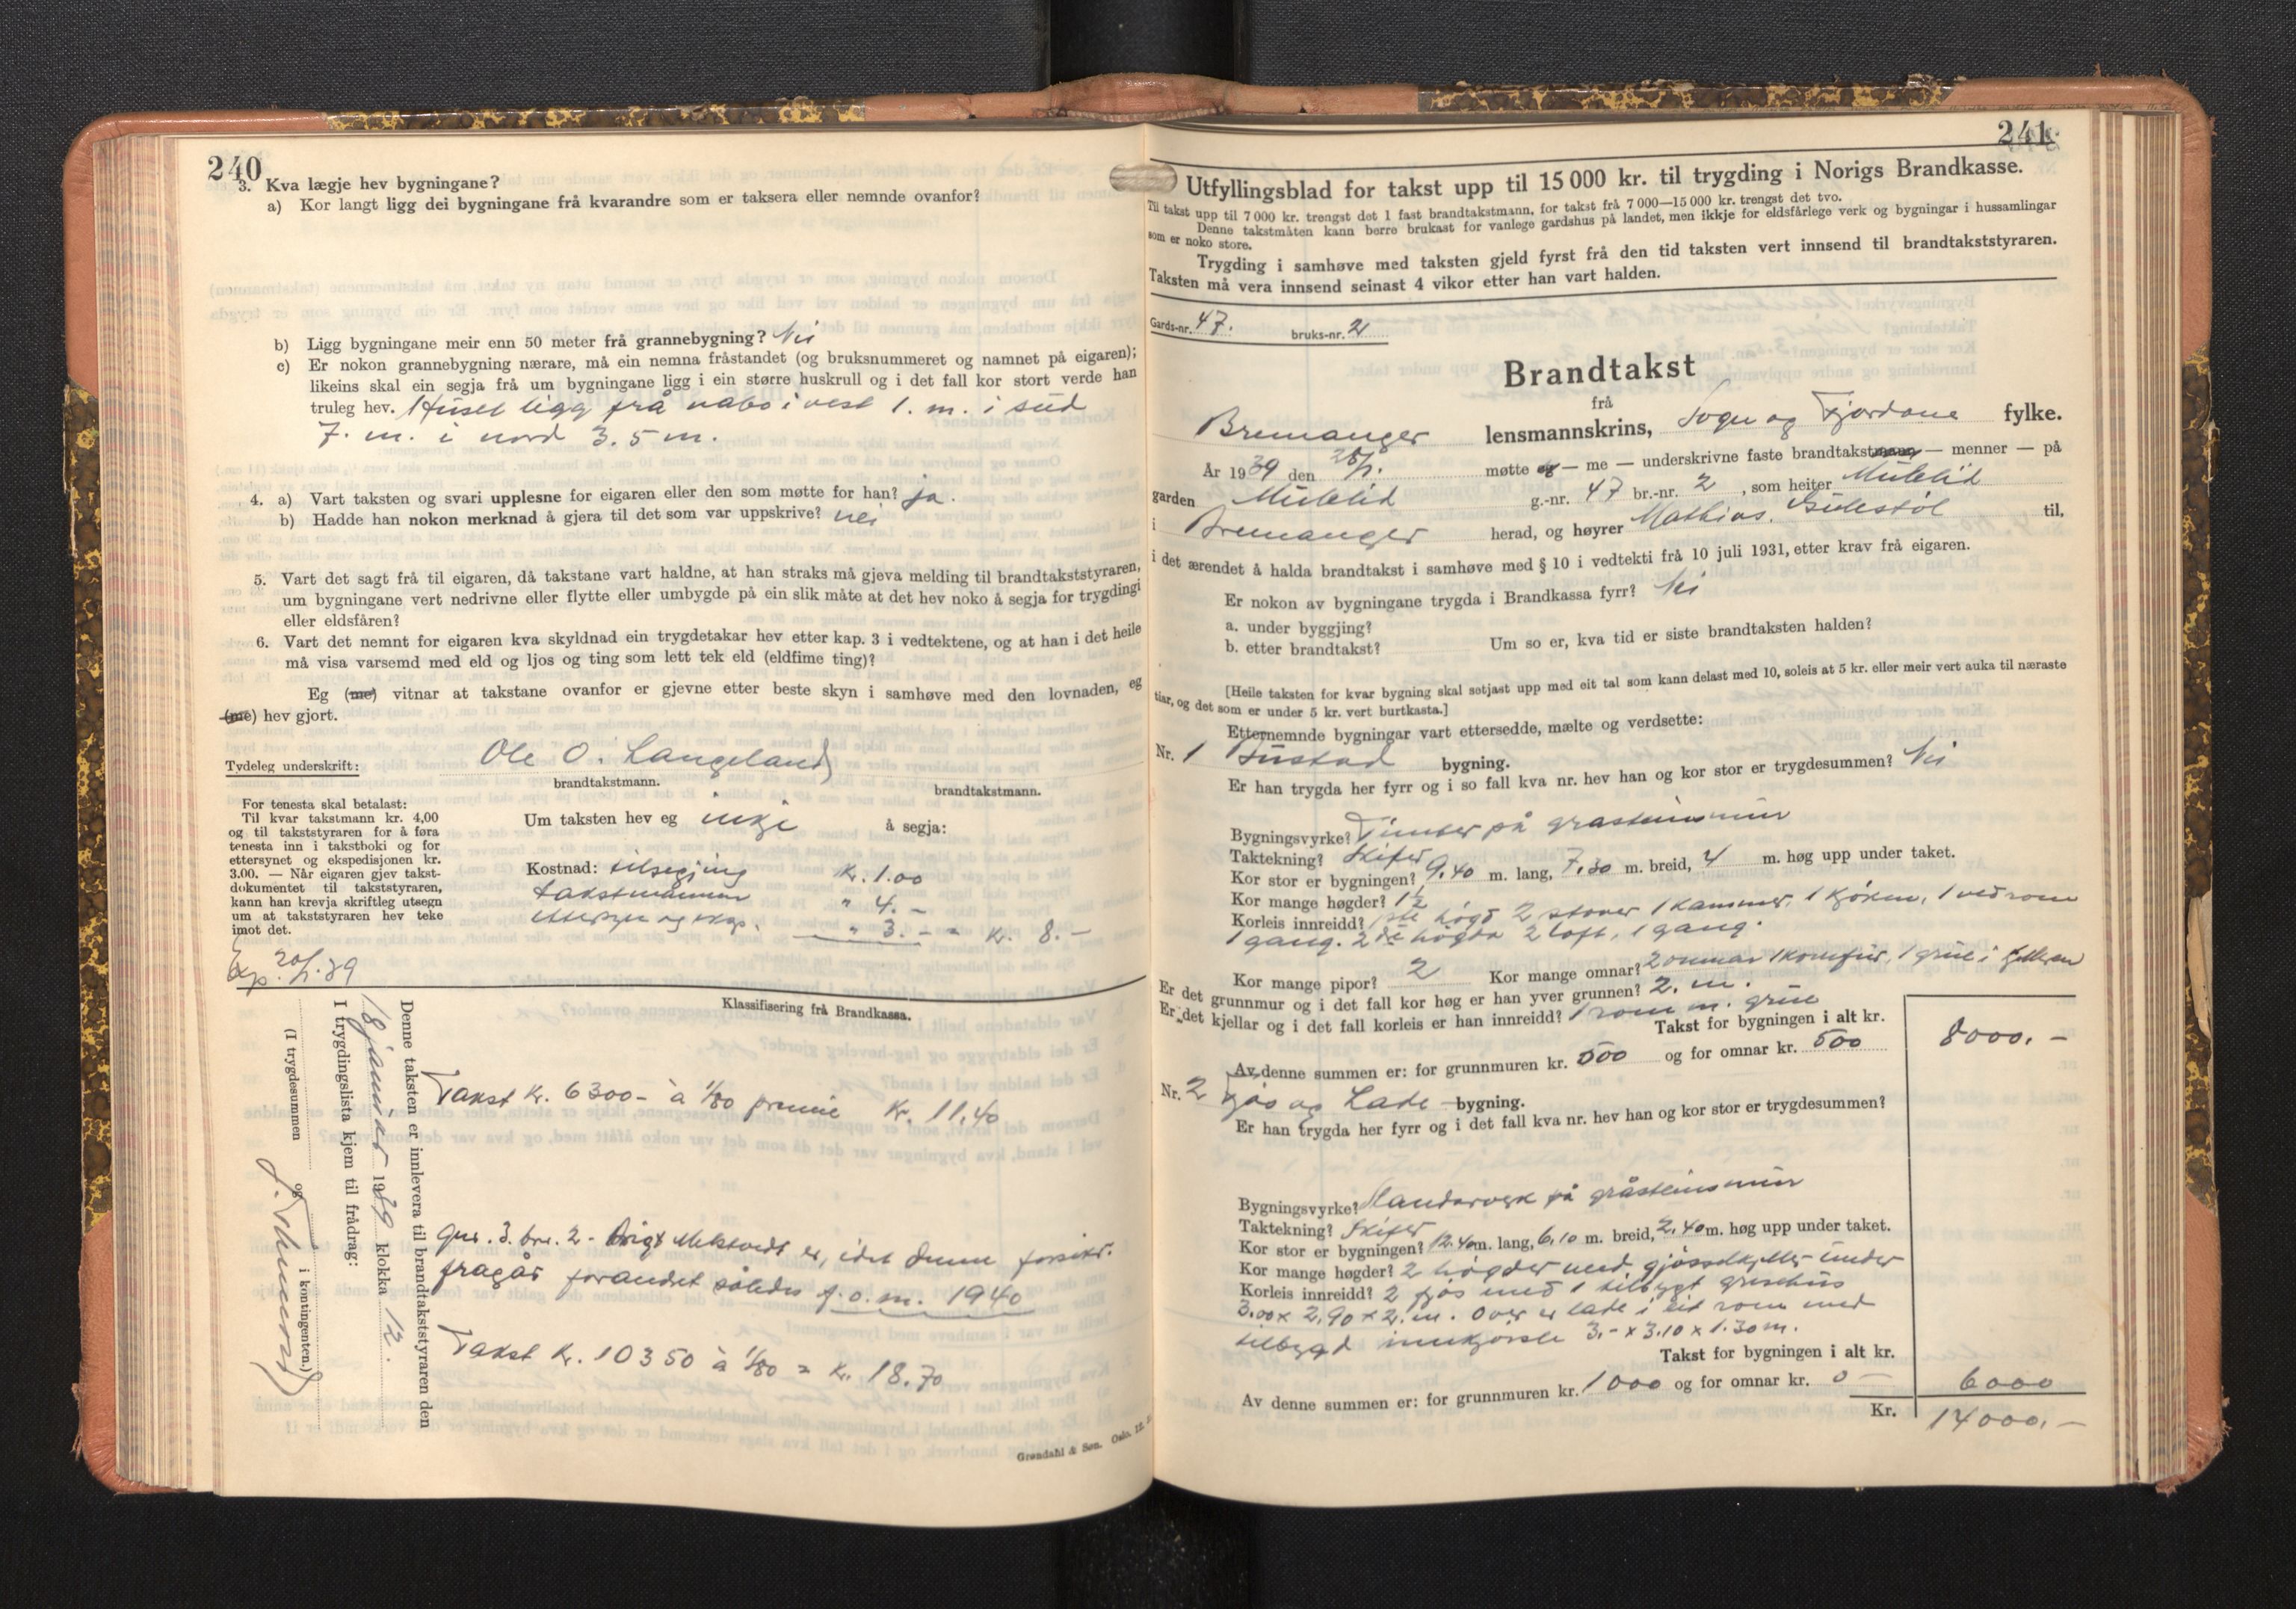 240
3. Kva lægje hev bygningane?
a) Kor langt ligg dei bygningane frå kvarandre som er taksera eller nemnde ovanfor?
b) Ligg bygningane meir enn 50 meter frå grannebygning? Nei
c) Er nokon grannebygning nærare, må ein nemna fråstandet (og bruksnummeret og namnet på eigaren);
likeins skal ein segja frå um bygningane ligg i ein større huskrull og i det fall kor stort verde han
truleg hev. Huset ligg frå nabo i vest 1. m. i süd
7. m. i nord 3.5 m.
4. a) Vart taksten og svari upplesne for eigaren eller den som møtte for han? ja.
b) Hadde han nokon merknad å gjera til det som var uppskrive? nei
5. Vart det sagt frå til eigaren, då takstane vart haldne, at han straks må gjeva melding til brandtakststyraren,
um bygningane vert nedrivne eller flytte eller umbygde på ein slik måte at det hev noko å segja for trygdingi
eller eldsfåren?
6. Vart det nemnt for eigaren kva skyldnad ein trygdetakar hev etter kap. 3 i vedtektene, og at han i det heile
må visa varsemd med eld og ljos og ting som lett tek eld (eldfime ting)?
Eg (me) vitnar at takstane ovanfor er gjevne etter beste skyn i samhøve med den lovnaden, eg
(me) hev gjort.
Tydeleg underskrift: Ole O. Langeland
brandtakstmann. brandtakstmann.
For tenesta skal betalast:
Til kvar takstmann kr. 4,00
og til takststyraren for å føra
tenesta inn i takstboki og for
ettersynet og ekspedisjonen kr.
3.00. — Når eigaren gjev takst-
dokumentet til takststyraren,
kann han krevja skriftleg utsegn
um at takststyraren hev teke
imot det.
Um taksten hev eg inkje å segja:
Kostnad: tilsegjing Kr. 1.00
takstmannen " 4. –
ettersyn og eksp. " 3. – = Kr. 8. –
Exp. 20/1.39
Klassifisering frå Brandkassa.
Denne taksten er innlevera til brandtakststyraren den
18 januar 1939 klokka 12.
I trygdingslista kjem til frådrag:
(I trygdesummen og i kontingenten.)
Takst Kr. 6300 – à 1/80 premie Kr. 11.40
Gnr. 3. bnr. 2 - er, idet denne forsikr.
fragår forandret således f.o.m. 1940
Takst Kr. 10350 à 1/80 = Kr. 18.70
Grøndahl & Søn. Oslo.
241
Utfyllingsblad for takst upp til 15 000 kr. til trygding i Norigs Brandkasse.
Til takst upp til 7 000 kr. trengst det 1 fast brandtakstmann, for takst frå 7 000—15 000 kr. trengst det tvo.
Denne takstmåten kann berre brukast for vanlege gardshus på landet, men ikkje for eldsfårlege verk og bygningar i hussamlingar
som er noko store.
Trygding i samhøve med taksten gjeld fyrst frå den tid taksten vert innsend til brandtakststyraren.
Taksten må vera innsend seinast 4 vikor etter han vart halden.
Gards-nr. 47. bruks-nr. 2
Brandtakst
frå
Bremanger lensmannskrins, Sogn og Fjordane fylke.
År 1939 den møtte eg — me — underskrivne faste brandtakstmann — menner — på
garden Mulelid g.-nr. 47 br.-nr. 2, som heiter Mulelid
i Bremanger herad, og høyrer Mathias. Gulestøl til,
i det ærendet å halda brandtakst i samhøve med § 10 i vedtekti frå 10 juli 1931, etter krav frå eigaren.
Er nokon av bygningane trygda i Brandkassa fyrr? Nei
a. under byggjing?
b. etter brandtakst? Um so er, kva tid er siste brandtaksten halden?
[Heile taksten for kvar bygning skal setjast upp med eit tal som kann delast med 10, soleis at 5 kr. eller meir vert auka til næraste
tiar, og det som er under 5 kr. vert burtkasta.]
Etternemnde bygningar vart ettersedde, mælte og verdsette:
Nr. 1 Bustad bygning.
Er han trygda her fyrr og i so fall kva nr. hev han og kor stor er trygdesummen? Nei
Bygningsvyrke? Timber på grasteinsmür
Taktekning? Skifer
Kor stor er bygningen? 9.40 m. lang, 7.30 m. breid, 4 m. høg upp under taket.
Kor mange høgder? 1½
Korleis innreidd? 1ste høgd 2 stover 1 kammer, 1 kjøken, 1 vedrom
1 gang. 2de høgda 2 loft, 1 gang.
Kor mange pipor? 2 Kor mange omnar? 2 omnar 1 komfür, 1 grüe i kjelleren
Er det grunnmur og i det fall kor høg er han yver grunnen? 2. m.
Er det kjellar og i det fall korleis er han innreidd? 1 rom m. grüe
Takst for bygningen i alt kr. 8000. –
Av denne summen er: for grunnmuren kr. 500 og for omnar kr. 500
Nr. 2 Fjøs og Lade bygning.
Er han trygda her fyrr og i det fall kva nr. hev han og kor stor er trygdesummen?
Bygningsvyrke? Standarverk på gråsteinsmür
Taktekning? Skifer
Kor stor er bygningen? 12.40 m. lang, 6.10 m. breid, 2.40 m. høg upp under taket.
Kor mange høgder? 2 høgder med gjødselkjeller ünder
Korleis innreidd? 2 fjøs med 1 tilbygt grisehüs
3.00 x 2.90 x 2. m. Over er lade i eit rom med
tilbygd innkjørsle 3. – x 3.10 x 1.30 m.
Takst for bygningen i alt kr. 6000
Av denne summen er: for grunnmuren kr. 1000 og for omnar kr. 0 –
Kr. 14000. –